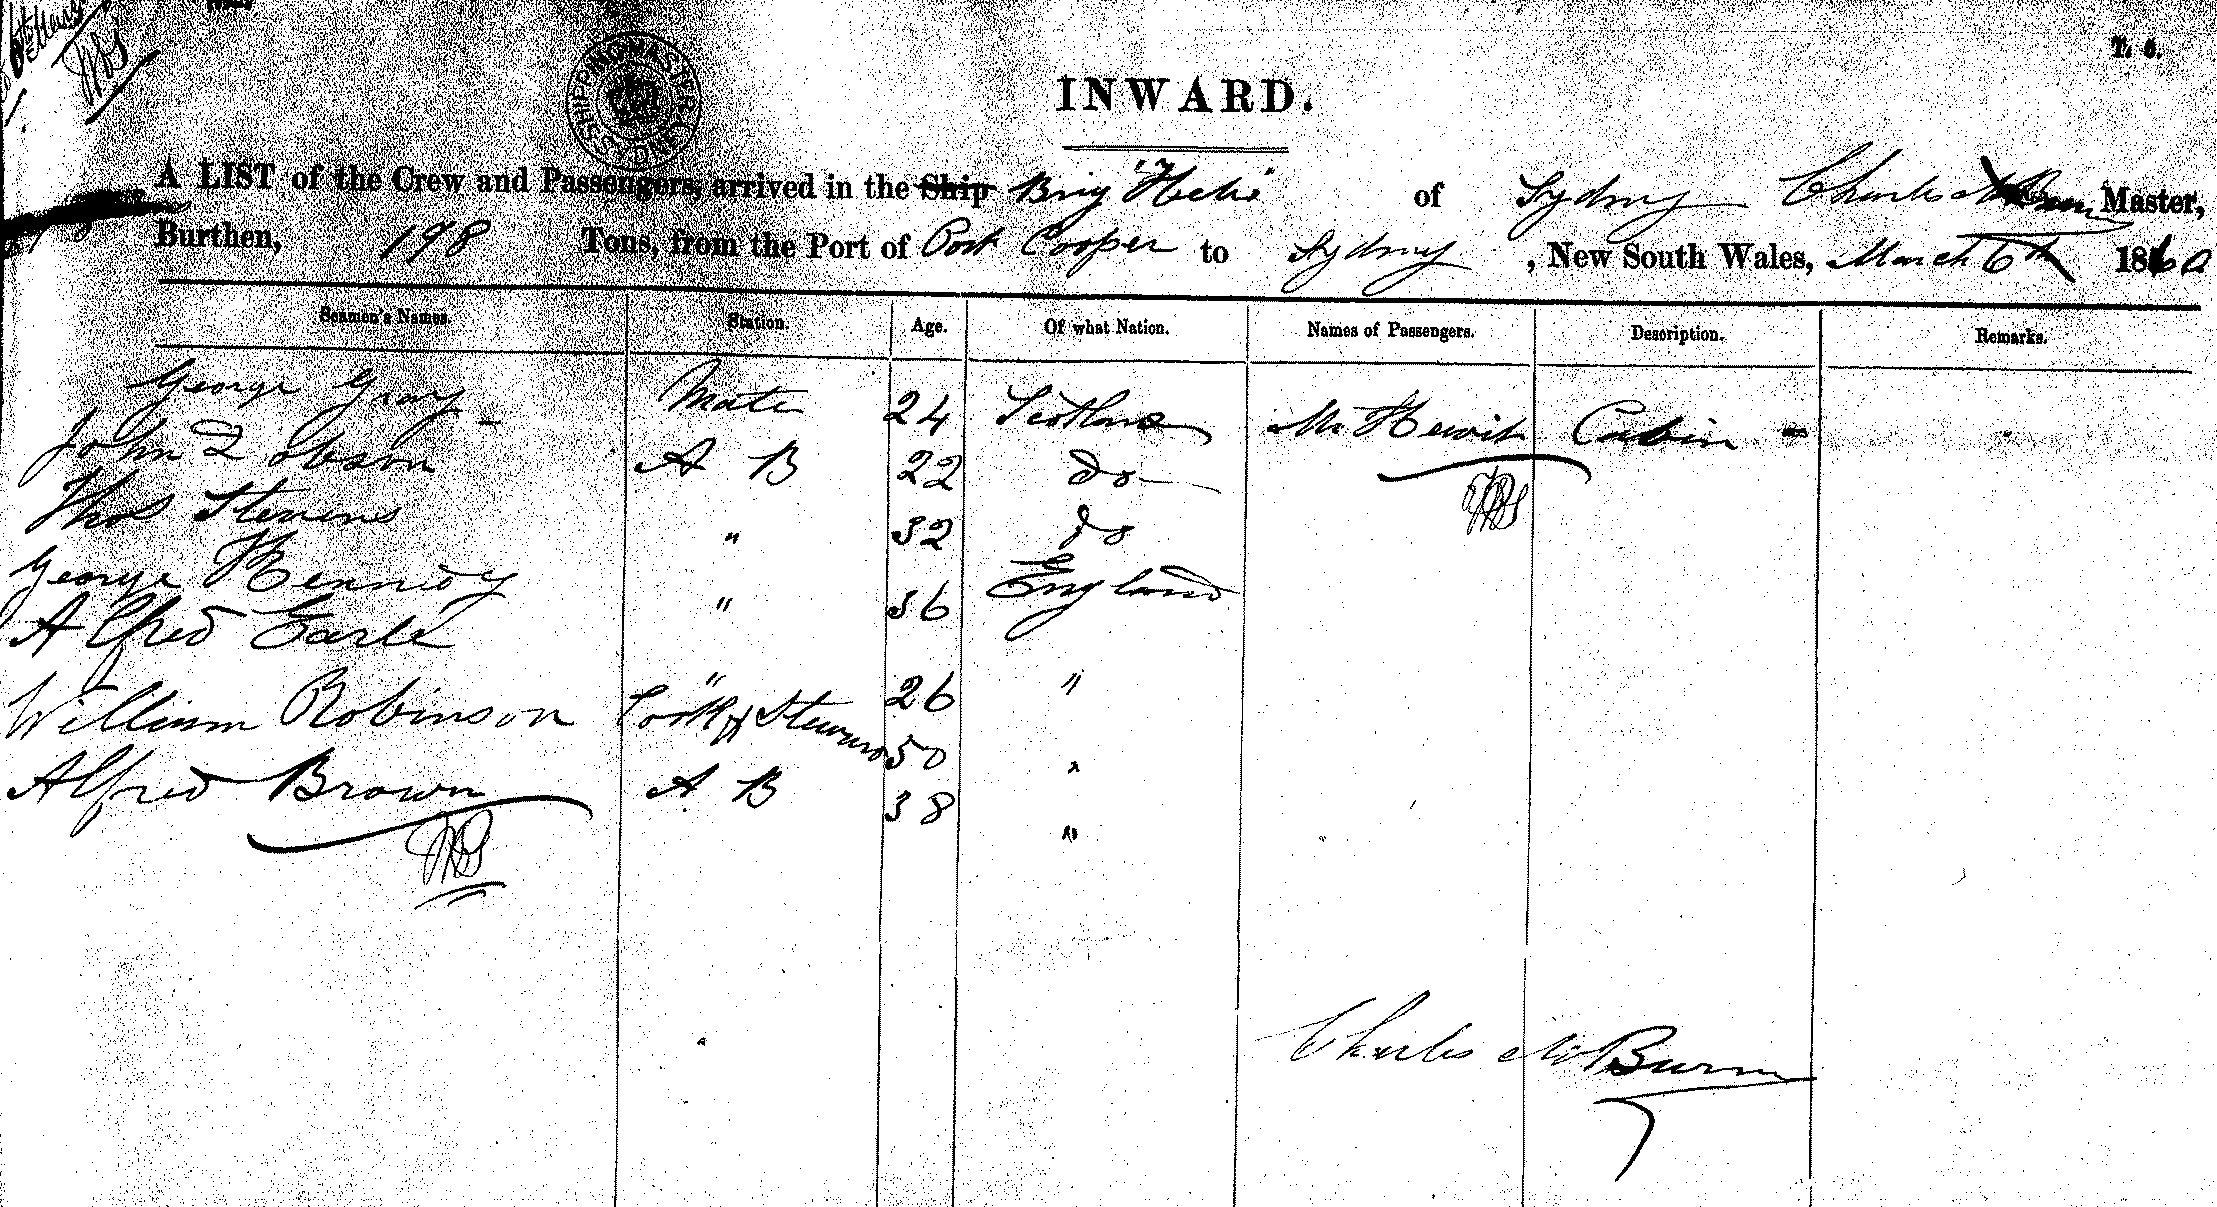 T. 6.
INWARD.
A LIST of the Crew and Passengers, arrived in the Ship Brig "Hebe" of Sydney Charles McBurn Master,
Burthen, 198 Tons, from the Port of Port Cooper to Sydney, New South Wales, March 6th 1860
Seamen's Names. Station. Age. Of what Nation. Names of Passengers. Description. Remarks.
George Gray Mate 24 Scotland Mr Hewit Cabin
John Dobson A B 22 Do
Thos Stevens " 32 do
George Kennedy " 36 England
Alfred Earle " 26 "
William Robinson Cook & Steward 50 "
Alfred Brown A B 38 "
Charles McBurn